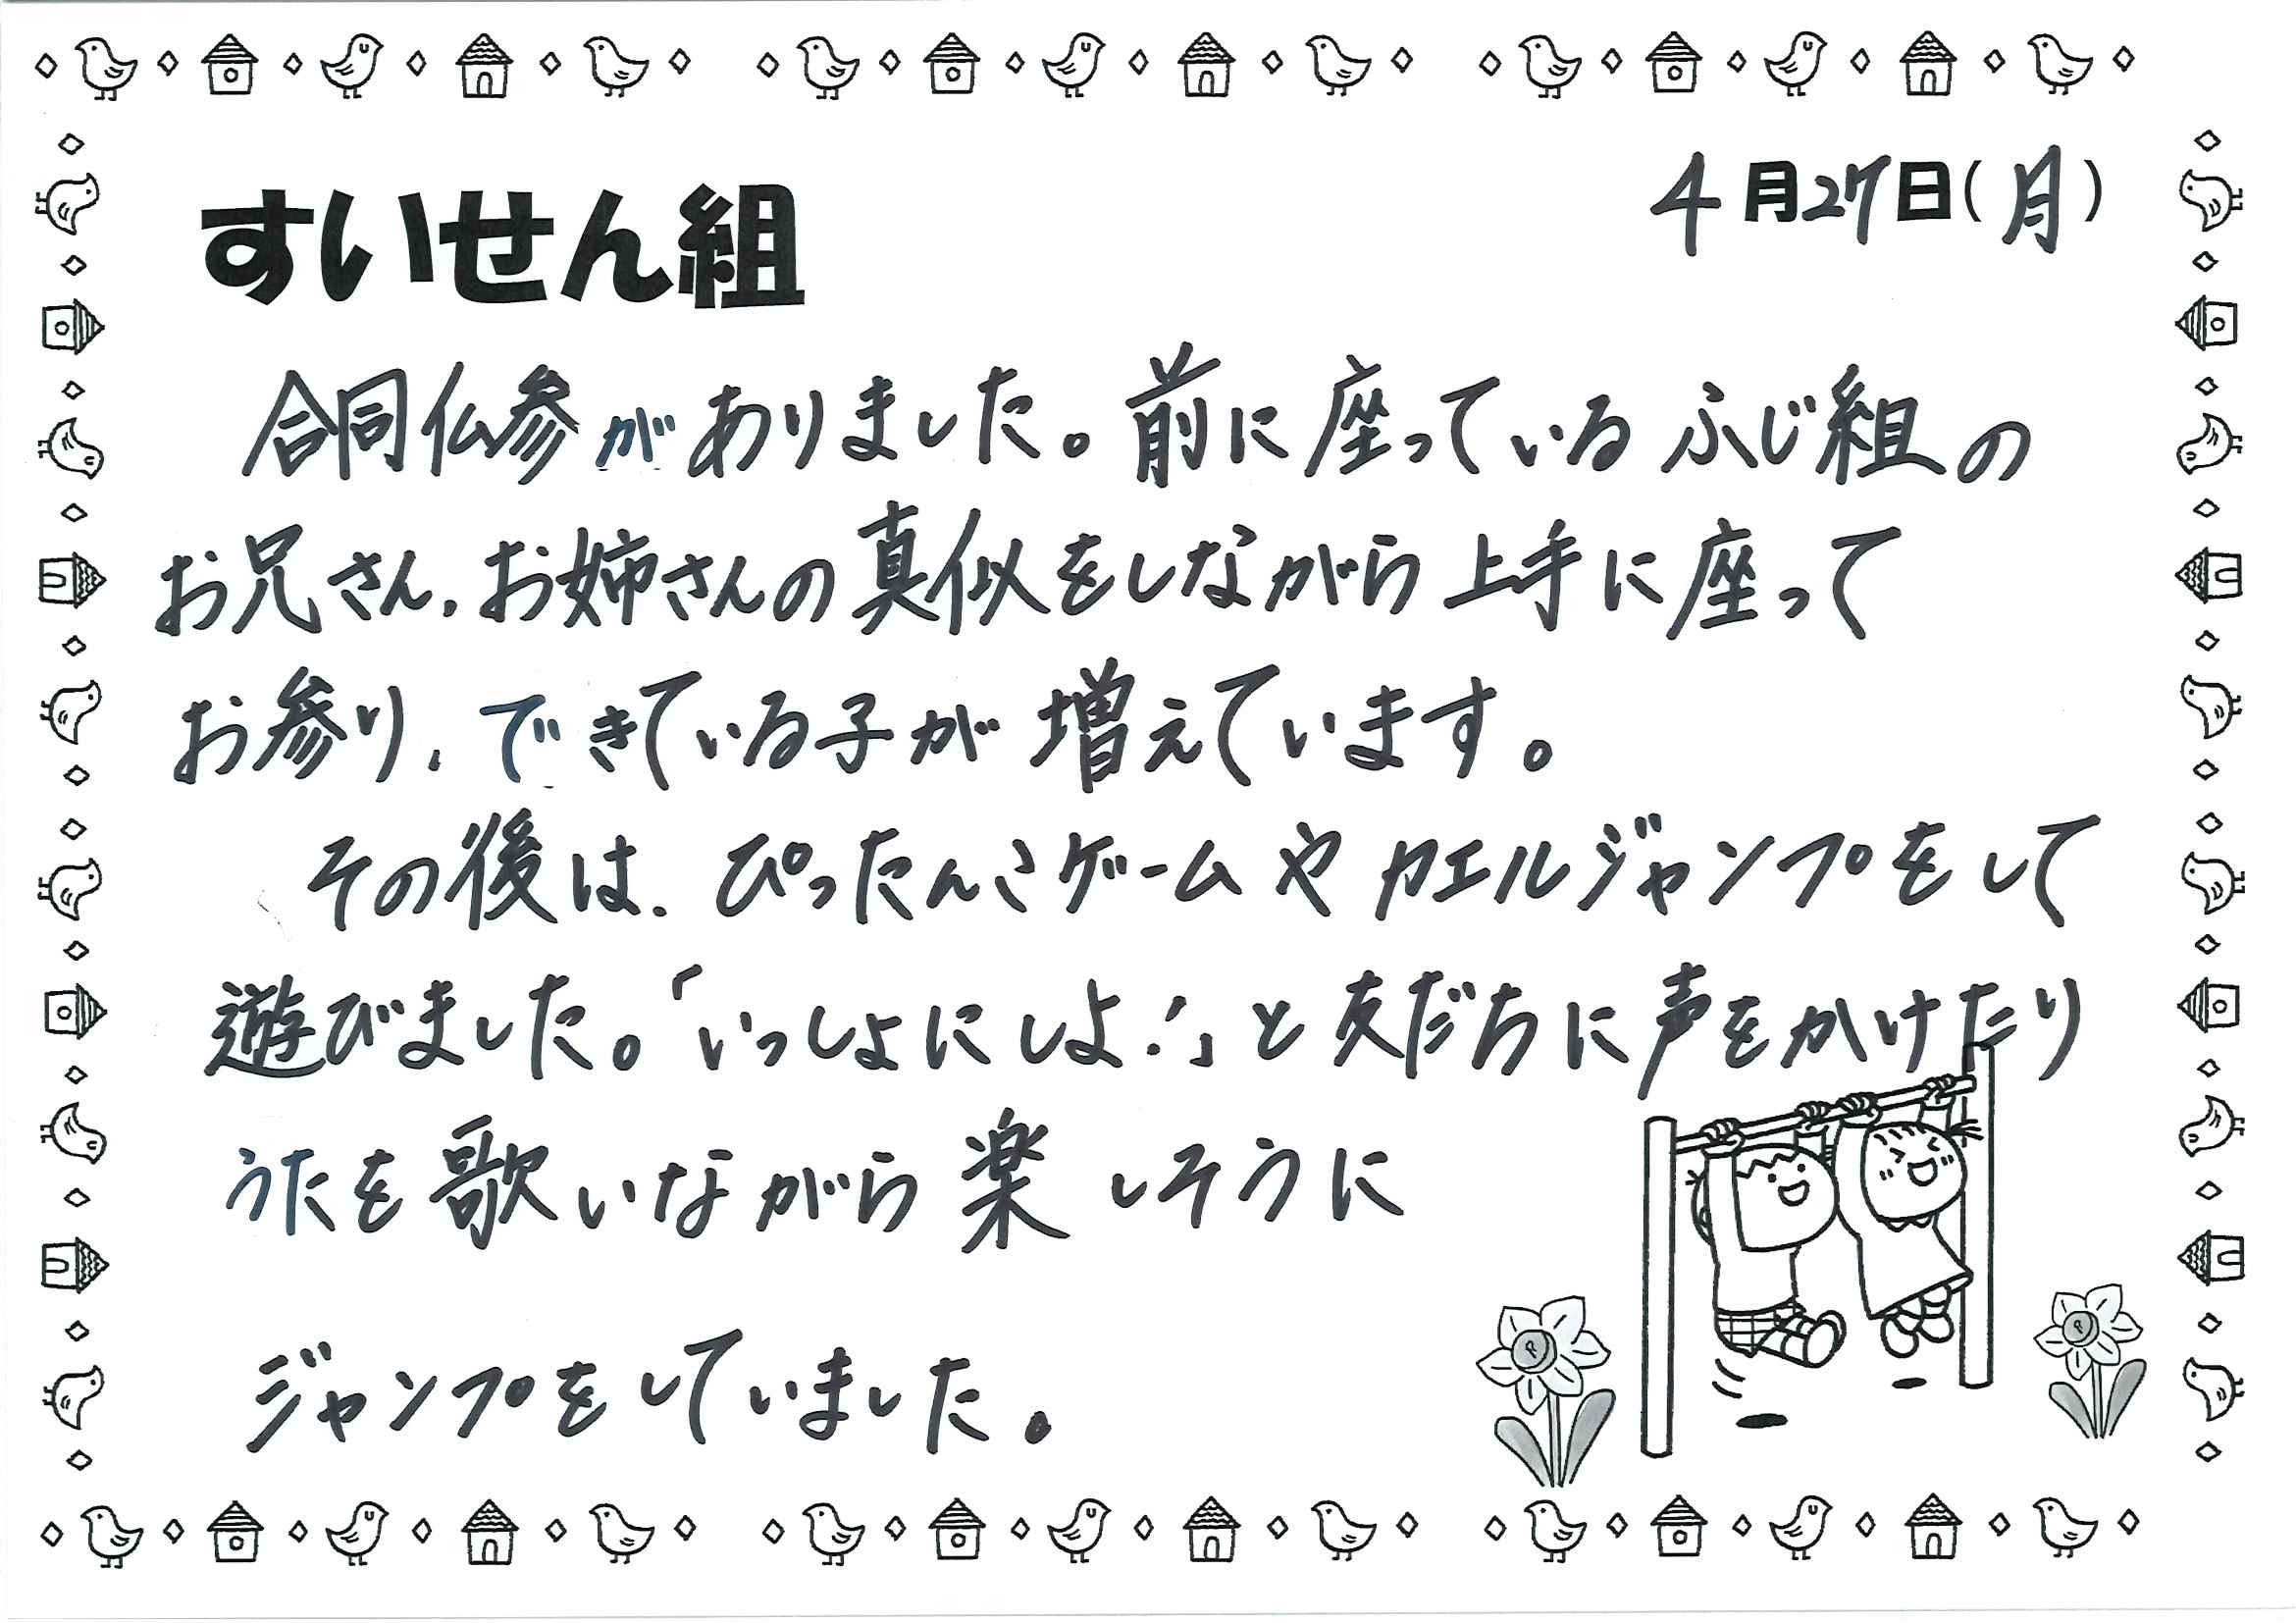 すいせん組
4月27日(月)
合同仏参がありました。前に座っているふじ組の
お兄さん、お姉さんの真似をしながら上手に座って
お参り、できている子が増えています。
その後は、ぴったんこゲームやカエルジャンプをして
遊びました。「いっしょにしよ!」と友だちに声をかけたり
うたを歌いながら楽しそうに
ジャンプをしていました。